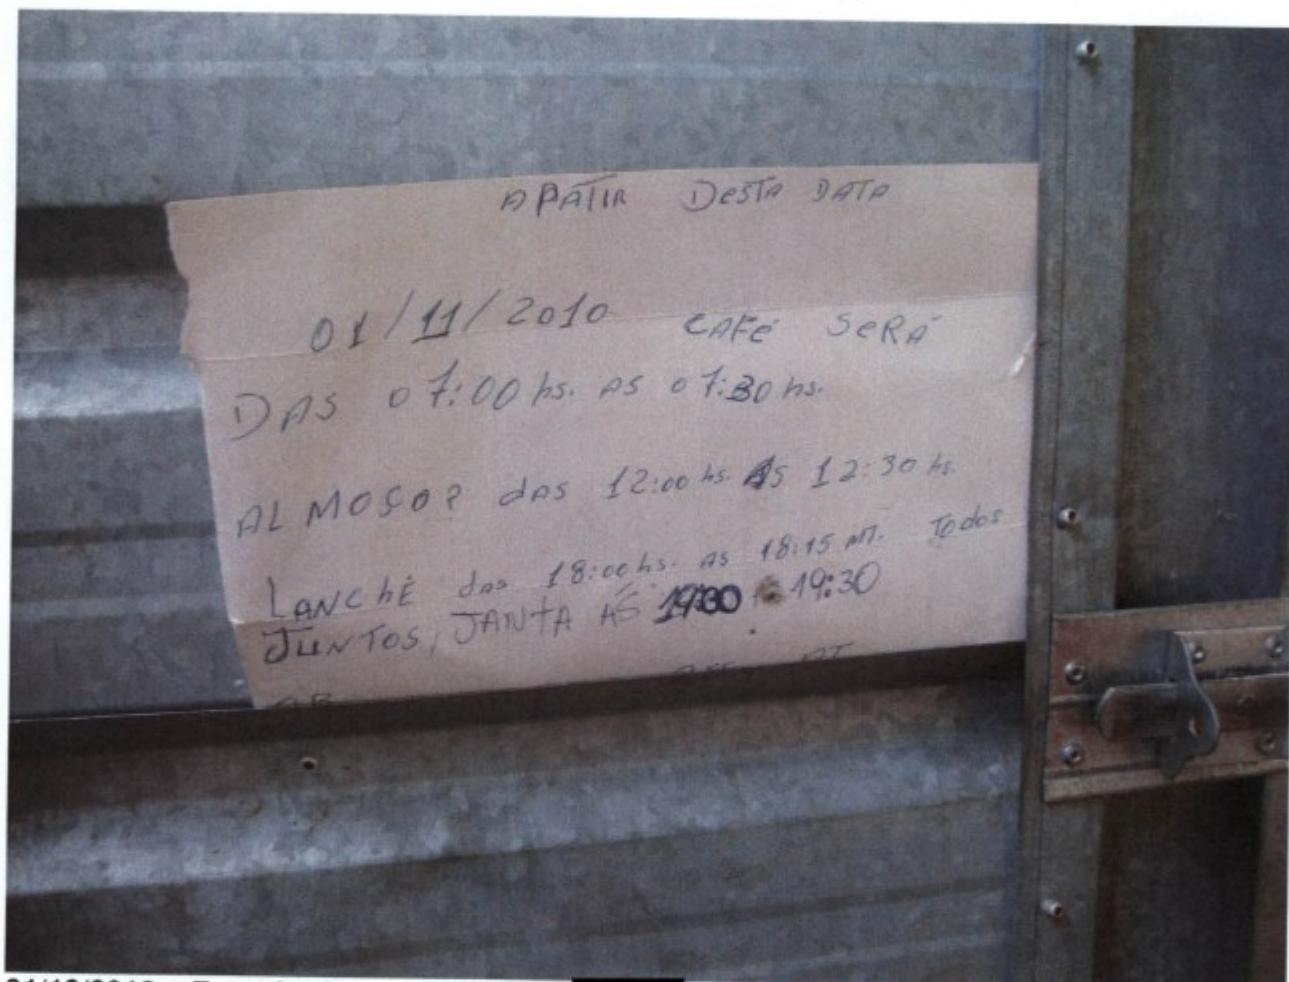 APATIR DESTA DATA
01/11/2010 CAFÉ SERÁ
DAS 07:00 hs. AS 07:30 hs.
ALMOÇO? das 12:00 hs. AS 12:30 hs.
LANCHÉ das 18:00 hs. AS 18:15 MT. Todos
JUNTOS, JANTA AS 19:00 19:30